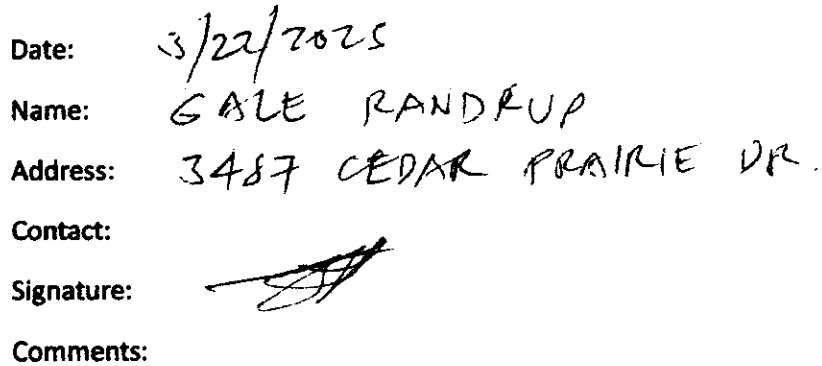 Date: 3/22/2025
Name: GALE RANDRUP
Address: 3487 CEDAR PRAIRIE DR.
Contact:
Signature:
Comments: